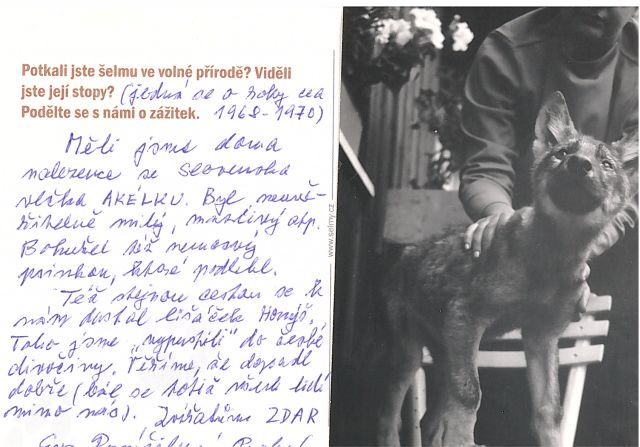 Potkali jste šelmu ve volné přírodě? Viděli
jste její stopy? (jedná se o roky cca
Podělte se s námi o zážitek. 1968-1970)
Měli jsme doma
nalezence ze Slovenska
vlčka AKELKU. Byl neuvě-
řitelně milý, mazlivý atp.
Bohužel též nemocný
psinkou, které podlehl.
Též stejnou cestou se k
nám dostal lišáček
Toho jsme „vypustili" do české
divočiny. Věříme, že dopadl
dobře (bál se totiž všech lidí
mimo nás). Zvířatům ZDAR
www.selmy.cz